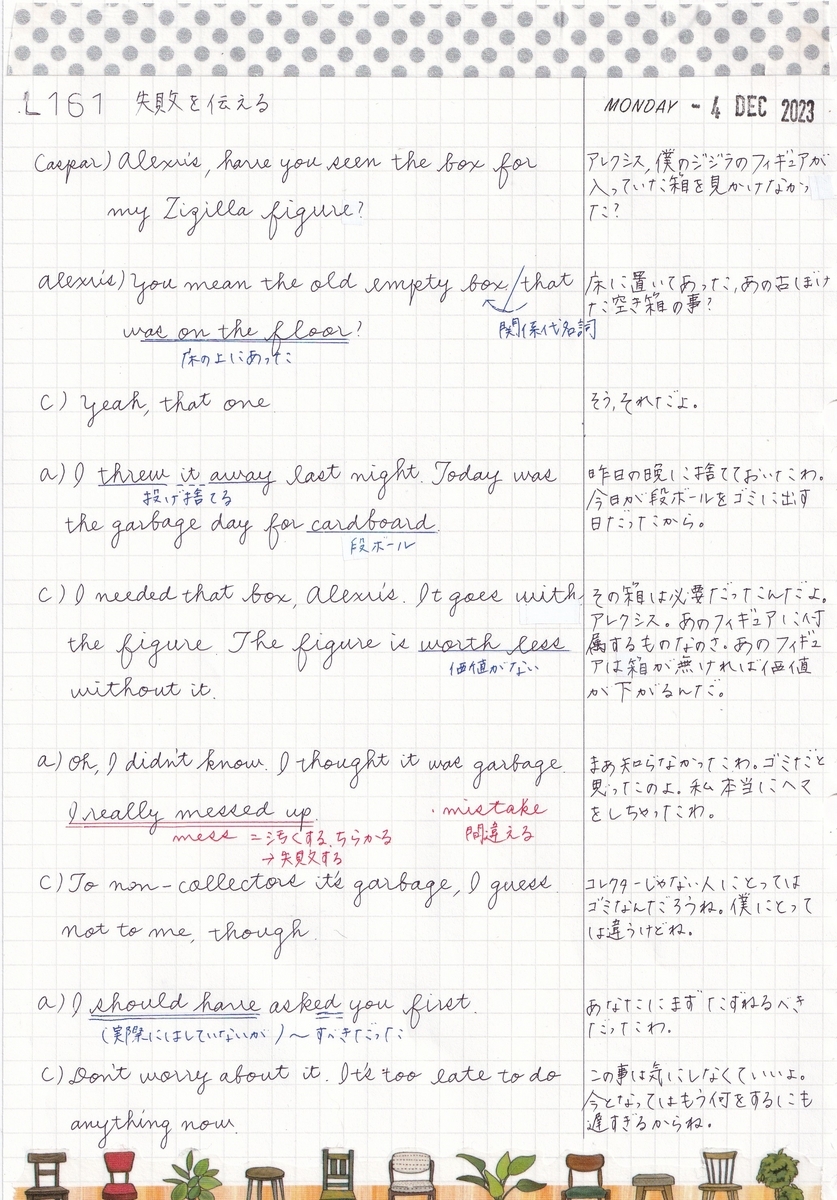 L161 失敗を伝える
MONDAY - 4 DEC 2023
Caspar) Alexis, have you seen the box for
my Zigilla figure?
アレクシス, 僕のジジラのフィギュアが
入っていた箱を見かけなかっ
た?
Alexis) You mean the old empty box / that
was on the floor?
関係代名詞
床の上にあった
床に置いてあった, あの古ぼけ
た空き箱の事?
C) Yeah, that one.
そう, それだよ。
a) I threw it away last night. Today was
投げ捨てる
the garbage day for cardboard.
段ボール
昨日の晩に捨てておいたわ。
今日が段ボールをゴミに出す
日だったから。
C) I needed that box, Alexis. It goes with
the figure. The figure is worth less
価値がない
without it.
その箱は必要だったんだよ。
アレクシス。あのフィギュアに付
属するものなのさ。あのフィギュ
アは箱が無ければ価値
が下がるんだ。
a) Oh, I didn't know. I thought it was garbage.
I really messed up.
mess = 汚くする, ちらかる
→ 失敗する
・mistake
間違える
まあ知らなかったわ。ゴミだと
思ったのよ。私本当にヘマ
をしちゃったわ。
C) To non-collectors it's garbage, I guess.
not to me, though.
コレクターじゃない人にとっては
ゴミなんだろうね。僕にとって
は違うけどね。
a) I should have asked you first.
(実際にはしていないが) ～すべきだった
あなたにまずたずねるべき
だったわ。
C) Don't worry about it. It's too late to do
anything now.
この事は気にしなくていいよ。
今となってはもう何をするにも
遅すぎるからね。